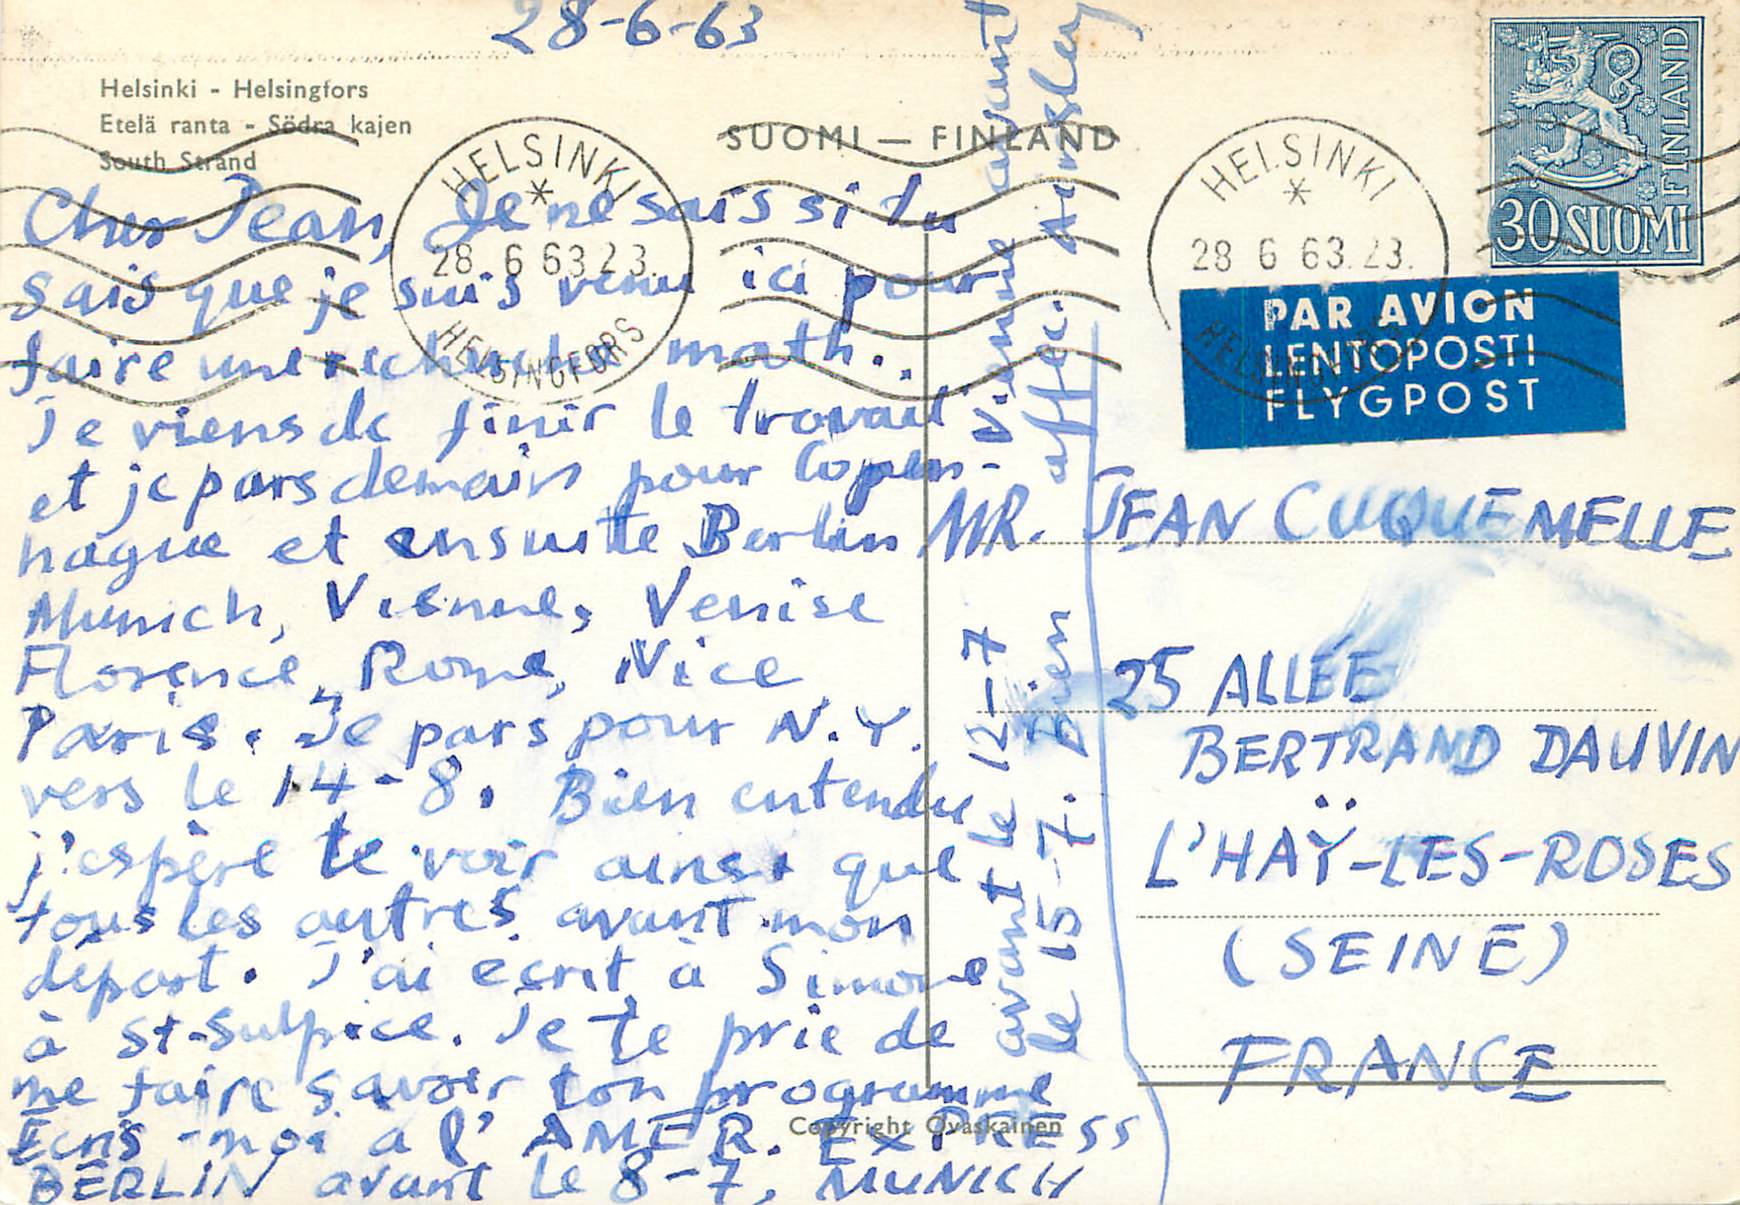 28-6-63
Helsinki - Helsingfors
Etelä ranta - Södra kajen
South Strand
SUOMI — FINLAND
HELSINKI
28 6 63 23.
HELSINGFORS
HELSINKI
28 6 63.23.
HELSINGFORS
FINLAND
30 SUOMI
PAR AVION
LENTOPOSTI
FLYGPOST
Cher Jean, Je ne sais si tu
sais que je suis venu ici pour
faire une recherche math.
Je viens de finir le travail
et je pars demain pour Copen-
hague et ensuite Berlin
Munich, Vienne, Venise
Florence, Rome, Nice
Paris. Je pars pour N.Y.
vers le 14-8. Bien entendu
j'espère te voir ainsi que
tous les autres avant mon
départ. J'ai ecrit à Simone
à St-Sulpice. Je te prie de
me faire savoir ton programme
Ecris-moi a l'AMER. EXPRESS
BERLIN avant le 8-7, MUNICH
avant le 12-7 Vienne avant
le 15-7. Bien affec.
MR. JEAN CUQUEMELLE
25 ALLÉE
BERTRAND DAUVIN
L'HAŸ-LES-ROSES
(SEINE)
FRANCE
Copyright Ovaskainen